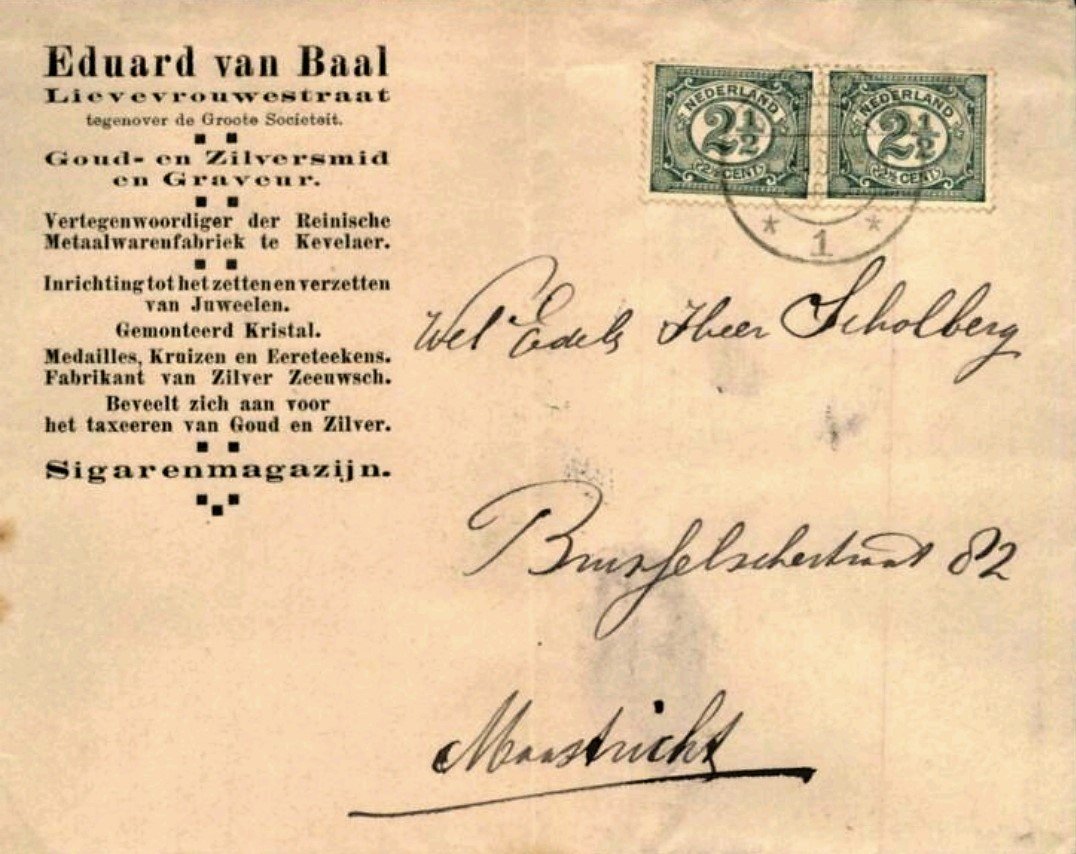 Eduard van Baal
Lievevrouwestraat
tegenover de Groote Societeit.
Goud- en Zilversmid
en Graveur.
Vertegenwoordiger der Reinische
Metaalwarenfabriek te Kevelaer.
Inrichting tot het zetten en verzetten
van Juweelen.
Gemonteerd Kristal.
Medailles, Kruizen en Eereteekens.
Fabrikant van Zilver Zeeuwsch.
Beveelt zich aan voor
het taxeeren van Goud en Zilver.
Sigarenmagazijn.
NEDERLAND
2½
2½ CENT
NEDERLAND
2½
2½ CENT
* 1 *
Wel Edele Heer Scholberg
Brusselschestraat 82
Maastricht